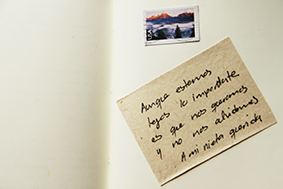 Aunque estemos
lejos lo importante
es que nos queramos
y no nos olvidemos
A mi nieta querida